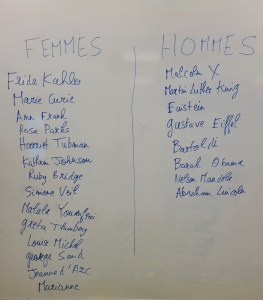 FEMMES
Frida Kahlo
Marie Curie
Ann Frank
Rose Parks
Harriett Tubman
Kathrin Johnson
Ruby Bridge
Simone Veil
Malala
Greta
Louise Michel
George Sand
Jeanne d'Arc
Marianne
HOMMES
Malcolm X
Martin Luther King
Einstein
Gustave Eiffel
Bartoldi
Barak Obama
Nelson Mandela
Abraham Lincoln